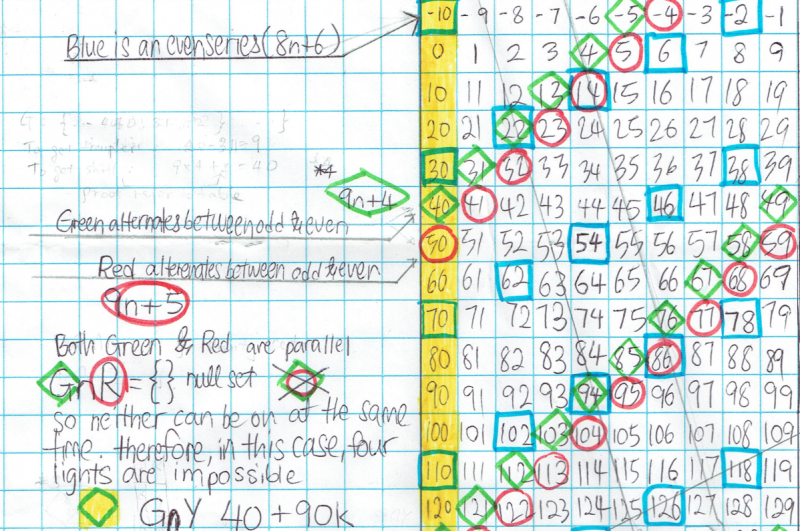 Blue is an even series (8n+6)
-10 -9 -8 -7 -6 -5 -4 -3 -2 -1
0 1 2 3 4 5 6 7 8 9
10 11 12 13 14 15 16 17 18 19
20 21 22 23 24 25 26 27 28 29
30 31 32 33 34 35 36 37 38 39
*4
9n+4
40 41 42 43 44 45 46 47 48 49
Green alternates between odd & even
50 51 52 53 54 55 56 57 58 59
Red alterenates between odd & even
60 61 62 63 64 65 66 67 68 69
9n+5
70 71 72 73 74 75 76 77 78 79
Both Green & Red are parallel
80 81 82 83 84 85 86 87 88 89
G∩R = { } null set
90 91 92 93 94 95 96 97 98 99
so neither can be on at the same
100 101 102 103 104 105 106 107 108 109
time. therefore, in this case, four
lights are impossible
110 111 112 113 114 115 116 117 118 119
G∩Y 40+90k
120 121 122 123 124 125 126 127 128 129